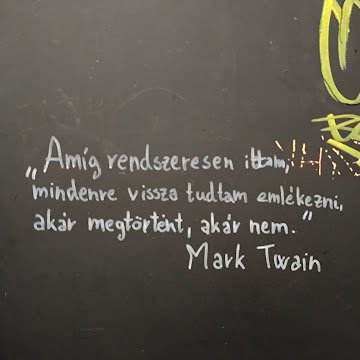 „Amíg rendszeresen ittam,
mindenre vissza tudtam emlékezni,
akár megtörtént, akár nem."
Mark Twain